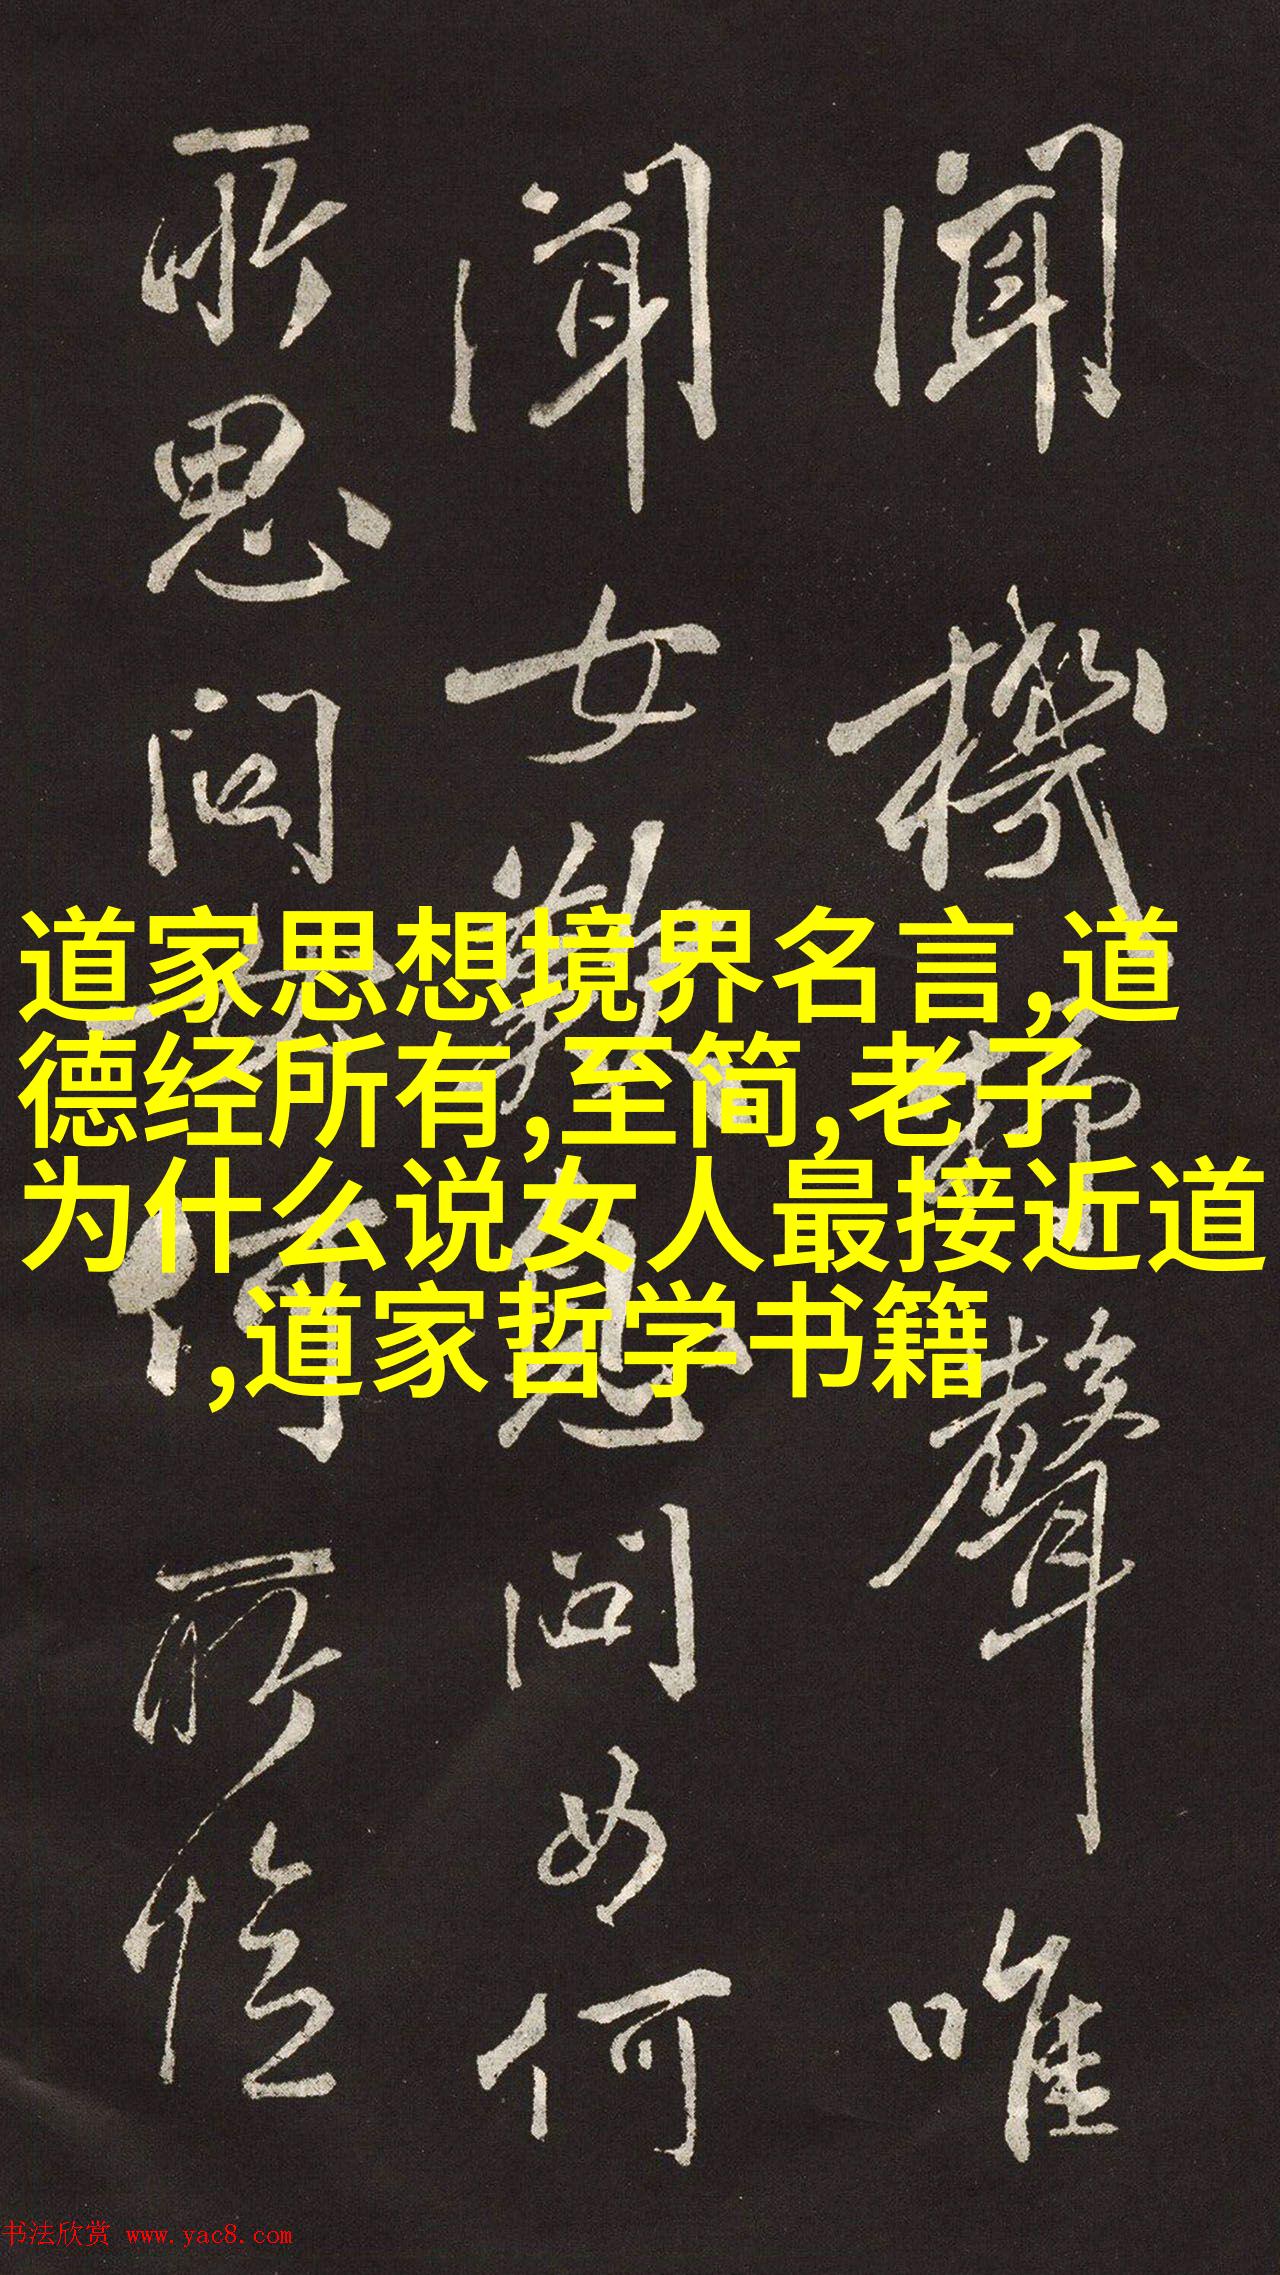 聞機杼聲唯
聞女歎息問女何
所思問女何所憶
道家思想境界名言,道
德经所有,至简,老子
为什么说女人最接近道
,道家哲学书籍
书法欣赏 www.yac8.com